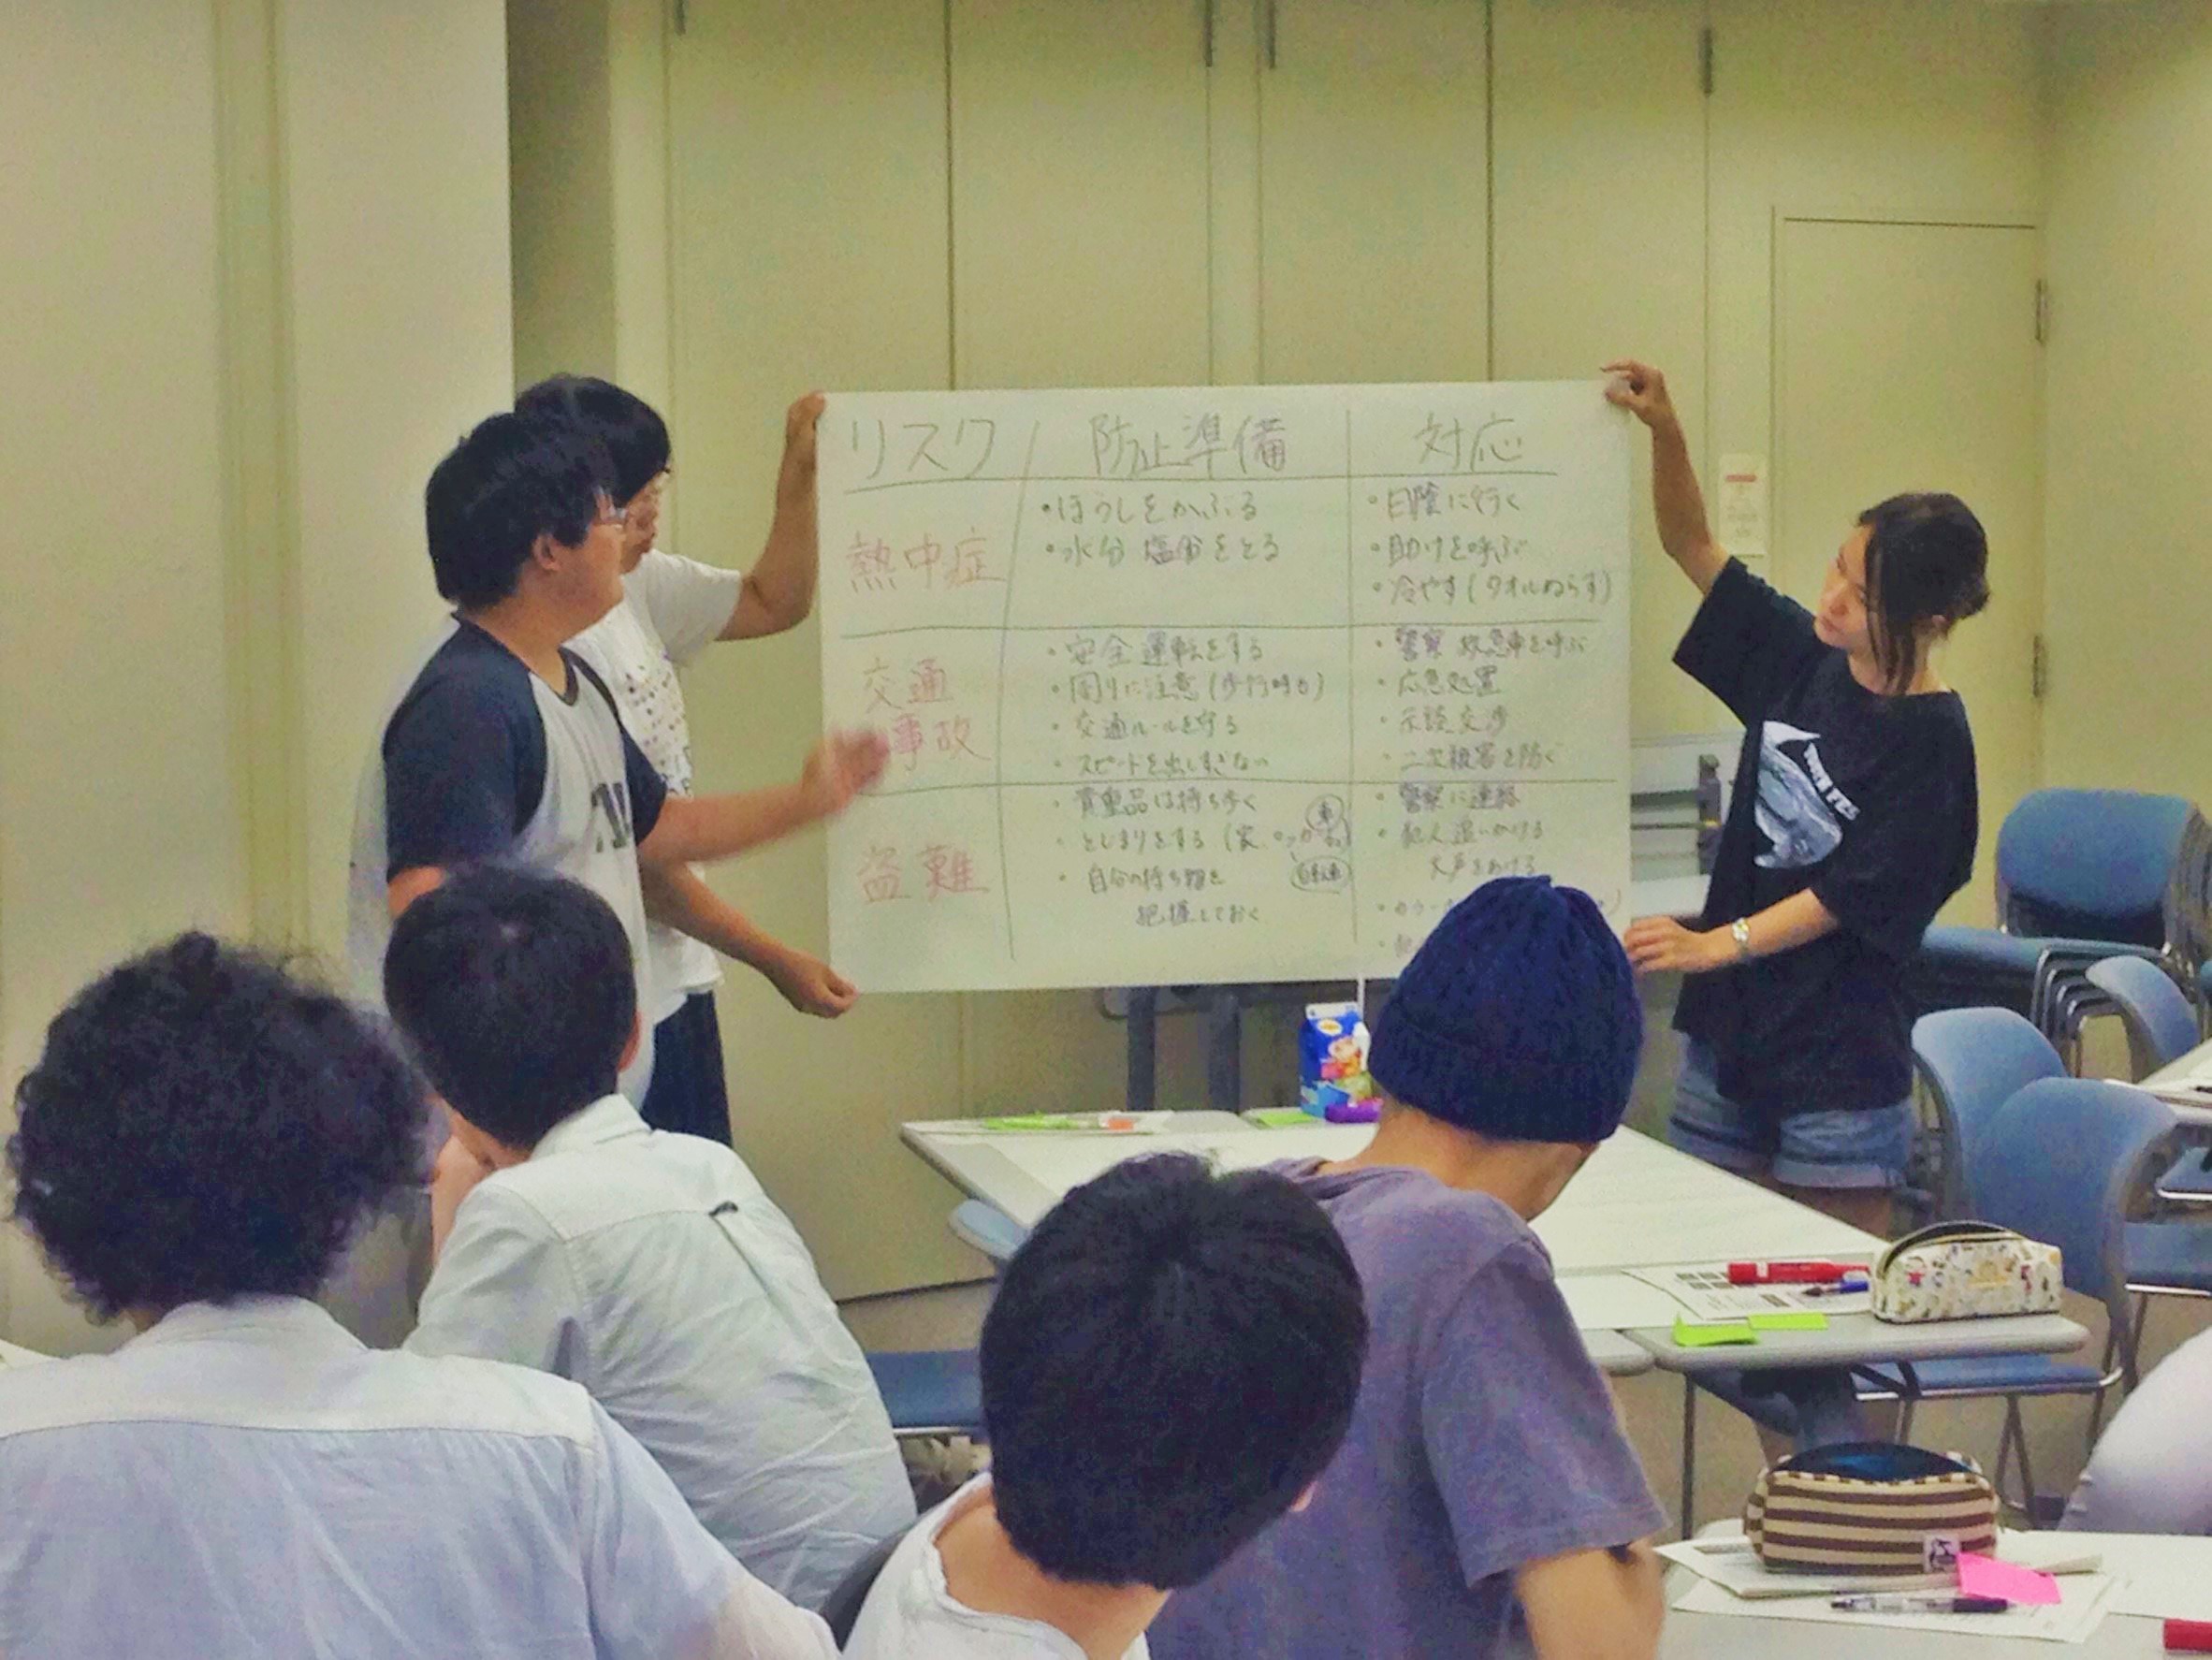 リスク 防止準備 対応
熱中症
・ぼうしをかぶる
・水分 塩分をとる
・日陰に行く
・助けを呼ぶ
・冷やす(タオルぬらす)
交通
事故
・安全運転をする
・周りに注意(歩行時も)
・交通ルールを守る
・スピードを出しすぎない
・警察 救急車を呼ぶ
・応急処置
・示談交渉
・二次被害を防ぐ
盗難
・貴重品は持ち歩く
・とじまりをする(家、
車
自転車
・自分の持ち物を
把握しておく
・警察に連絡
・犯人追いかける
大声をあげる